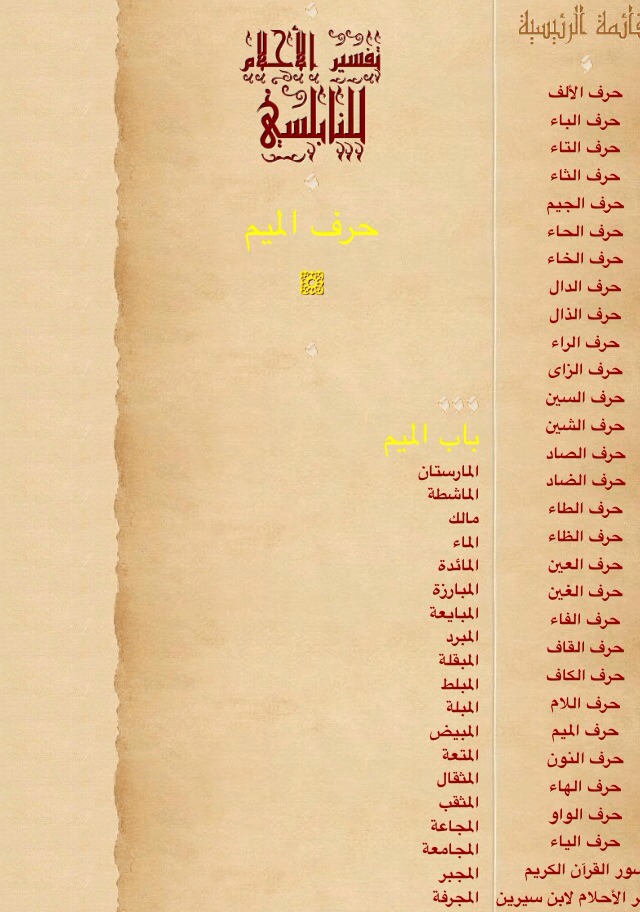 قائمة الرئيسية
حرف الألف
حرف الباء
حرف التاء
حرف الثاء
حرف الجيم
حرف الحاء
حرف الخاء
حرف الدال
حرف الذال
حرف الراء
حرف الزاى
حرف السين
حرف الشين
حرف الصاد
حرف الضاد
حرف الطاء
حرف الظاء
حرف العين
حرف الغين
حرف الفاء
حرف القاف
حرف الكاف
حرف اللام
حرف الميم
حرف النون
حرف الهاء
حرف الواو
حرف الياء
سور القرآن الكريم
ر الأحلام لابن سيرين
تفسير الأحلام
للنابلسي
حرف الميم
باب الميم
المارستان
الماشطة
مالك
الماء
المائدة
المبارزة
المبايعة
المبرد
المبقلة
المبلط
المبلة
المبيض
المتعة
المثقال
المثقب
المجاعة
المجامعة
المجبر
المجرفة